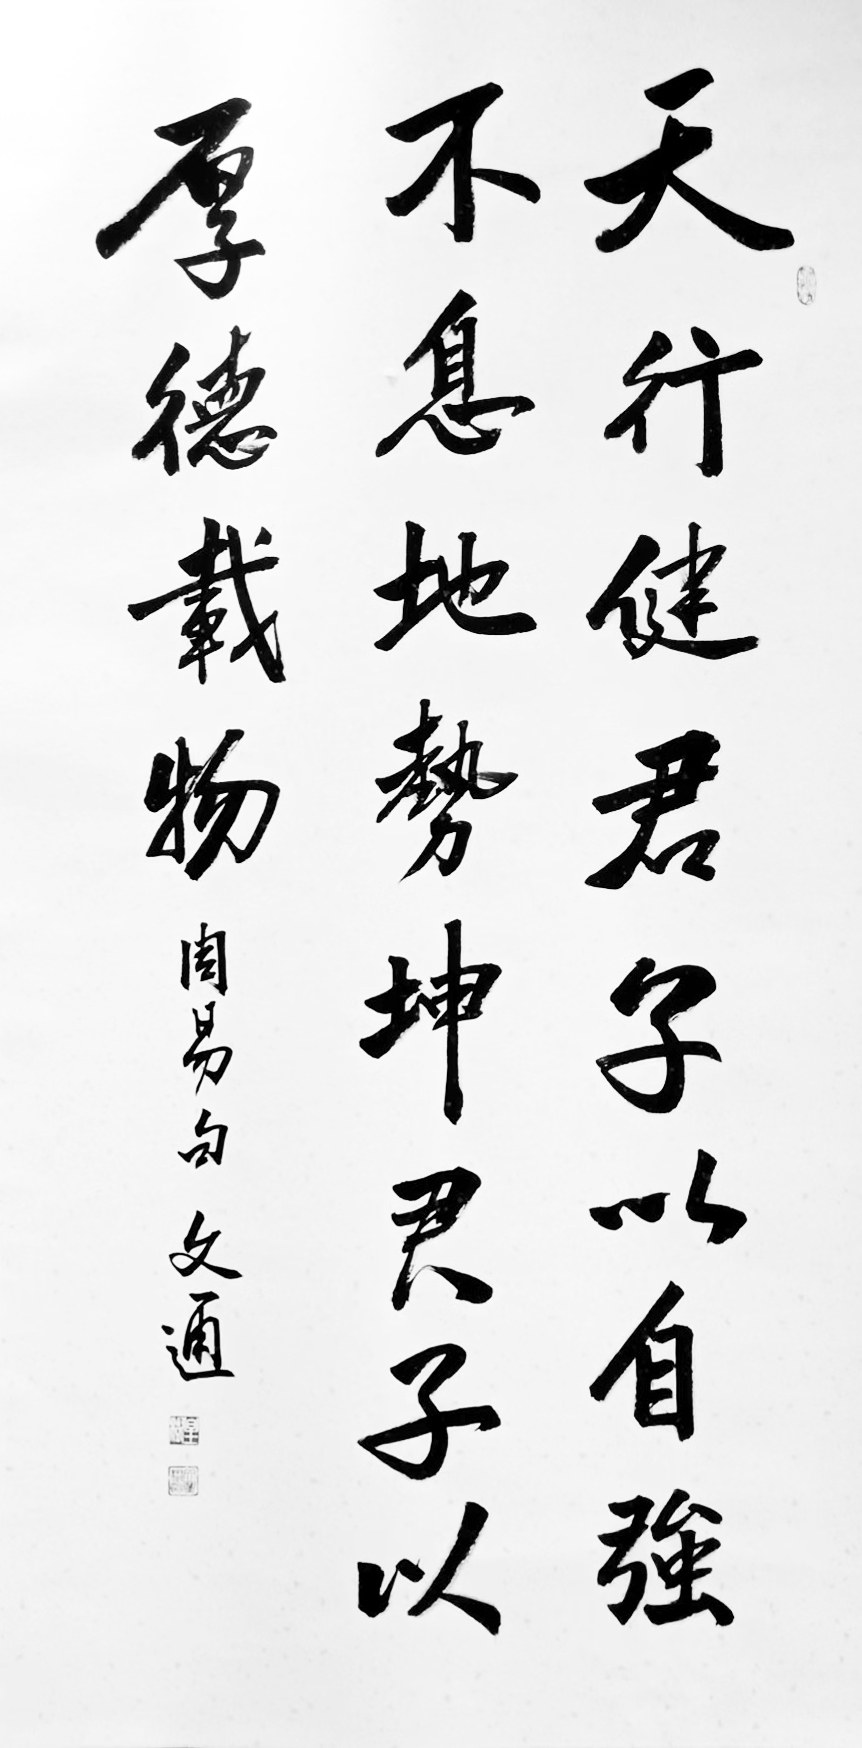 天行健君子以自強
不息地勢坤君子以
厚德載物
周易句 文通